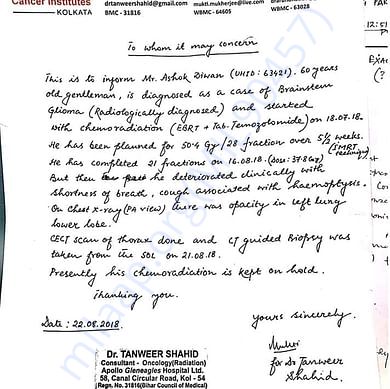 Cancer Institutes
KOLKATA
drtanweershahid@gmail.com
BMC - 31816
mukti.mukherjee@live.com
WBMC - 64605
WBMC - 63028
12:51
To whom it may concern
This is to inform Mr. Ashok Diwan (UHID: 63421). 60 years
old gentleman, is diagnosed as a case of Brainstem
Glioma (Radiologically diagnosed) and started
with chemoradiation (EBRT + Tab. Temozolomide) on 18.07.18
He has been planned for 50.4 Gy/28 fraction over 5½ weeks.
(IMRT technique)
He has completed 21 fractions on 16.08.18. (Dose: 37.8Gy)
But then he deteriorated clinically with
shortness of breath, cough associated with haemoptysis.
On Chest X-ray (PA view) there was opacity in left lung
lower lobe.
CECT scan of thorax done and CT guided Biopsy was
taken from the SOL on 21.08.18.
Presently his chemoradiation is kept on hold.
Thanking you.
Yours sincerely,
Date: 22.08.2018.
for Dr Tanweer
Shahid.
Dr. TANWEER SHAHID
Consultant - Oncology(Radiation)
Apollo Gleneagles Hospital Ltd.
58, Canal Circular Road, Kol - 54
(Regn. No. 31816(Bihar Council of Medical)